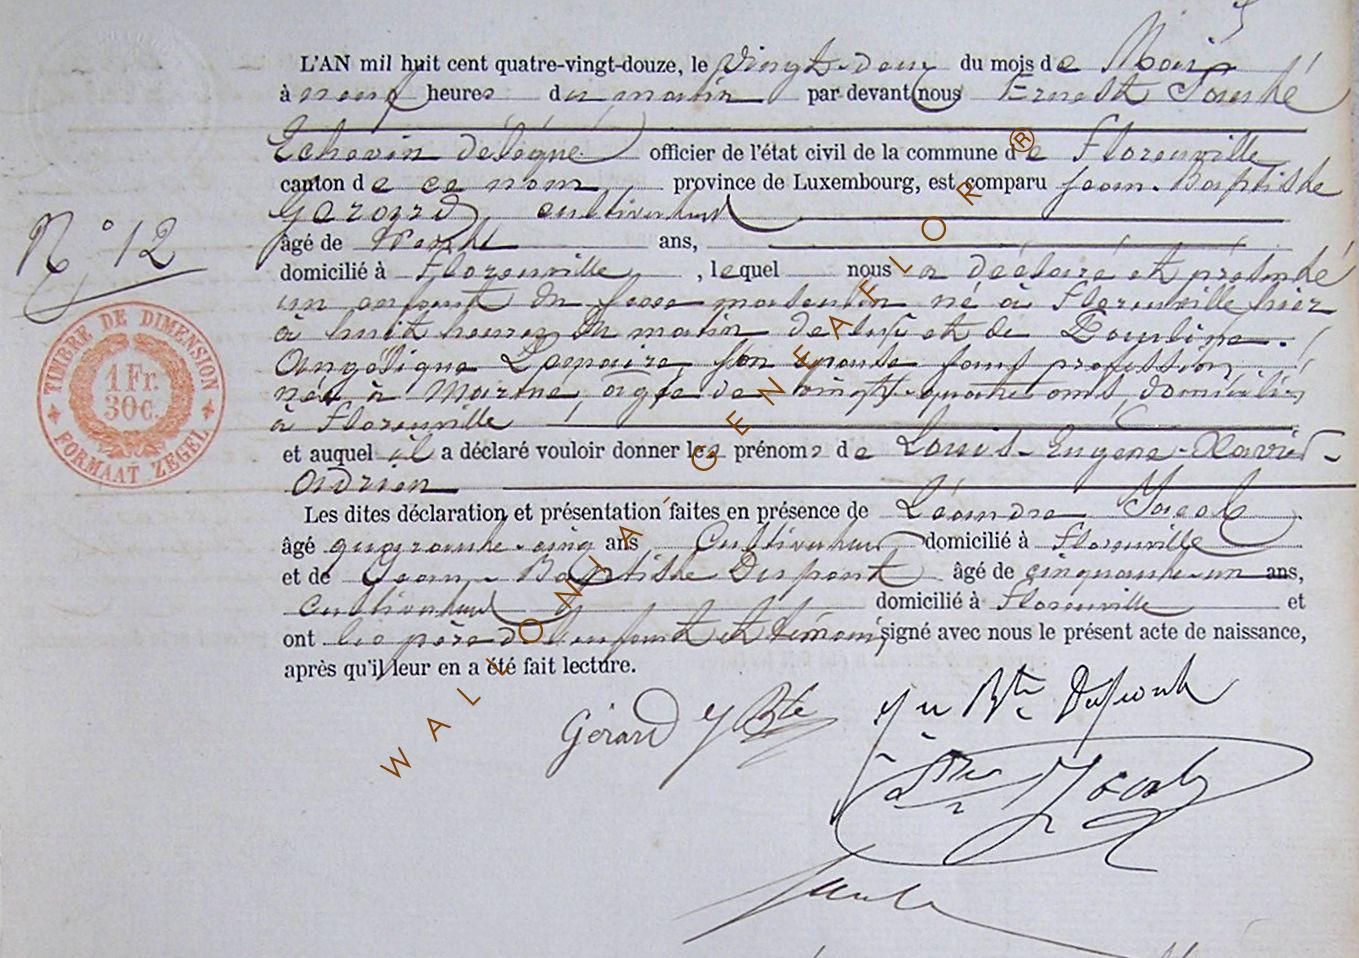 L'AN mil huit cent quatre-vingt-douze, le vingt-deux du mois de Mars
à neuf heures du matin par devant nous Ernest
Echevin délégué officier de l'état civil de la commune de Florenville
canton de ce nom, province de Luxembourg, est comparu Jean-Baptiste
Gérard, cultivateur
N° 12
âgé de trente ans,
domicilié à Florenville, lequel nous a déclaré et présenté
un enfant du sexe masculin né à Florenville hier
à huit heures du matin de lui et de Pauline-
Angélique Lemaire son épouse sans profession,
née à, âgée de vingt-quatre ans, domiciliée
à Florenville
et auquel il a déclaré vouloir donner les prénoms de Louis-Eugène-Xavier-
Adrien
Les dites déclaration et présentation faites en présence de Léandre Jacob
âgé quarante-cinq ans, Cultivateur domicilié à Florenville
et de Jean-Baptiste Dupont âgé de cinquante-un ans,
cultivateur domicilié à Florenville et
ont le père de l'enfant et témoins signé avec nous le présent acte de naissance,
après qu'il leur en a été fait lecture.
TIMBRE DE DIMENSION
1 Fr.
30c.
FORMAAT ZEGEL
Gérard J Bte
Jn Bte Dupont
Jacob
WALLONIA - GENEAFLOR ®